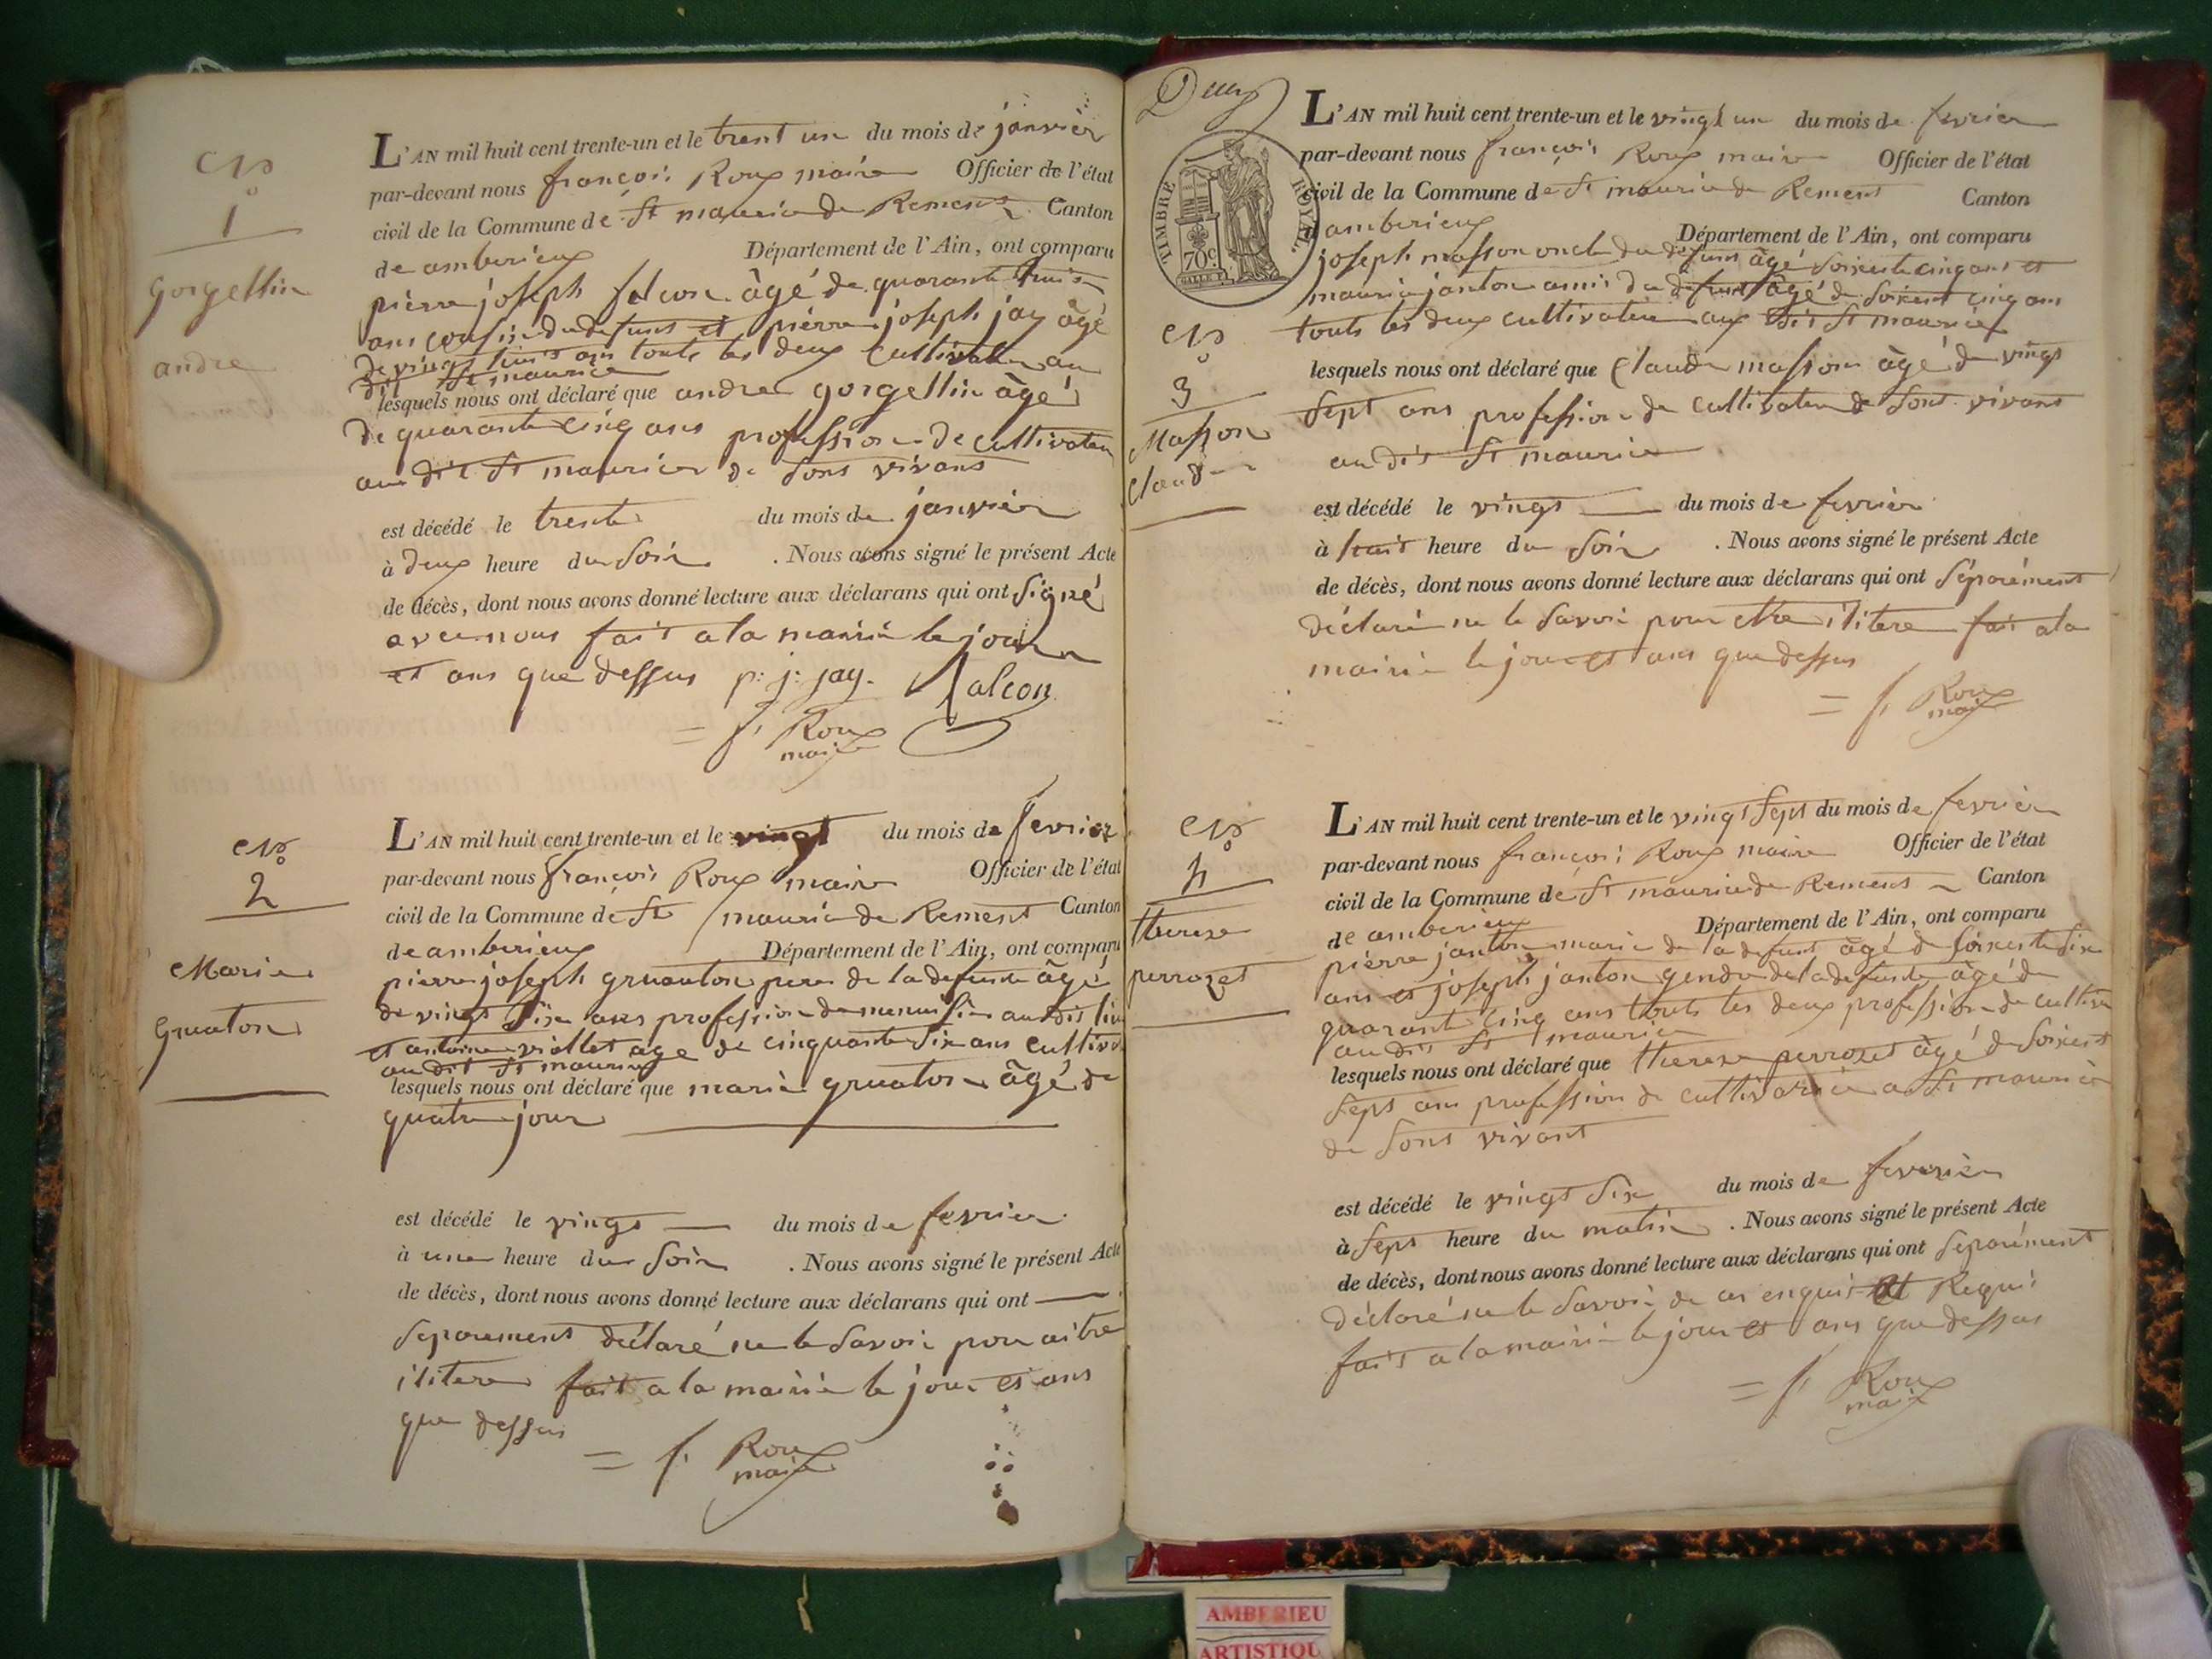 N°
1
Gorgellin
andre
L'AN mil huit cent trente-un et le trent un du mois de janvier
par-devant nous françois Roux maire Officier de l'état
civil de la Commune de St maurice de Remens Canton
de amberieux Département de l'Ain, ont comparu
pierre joseph falcon âgé de quarante trois
ans cousin du defunt et pierre joseph jay âgé
de vingt huit ans touts les deux cultivateur au
dit St maurice
lesquels nous ont déclaré que andre gorgellin âgé
de quarante cinq ans profession de cultivateu
au dit St maurice de sont vivans
est décédé le trente du mois de janvier
à deux heure du soir . Nous avons signé le présent Acte
de décès, dont nous avons donné lecture aux déclarans qui ont signé
avec nous fait a la mairie le jour
et ans que dessus p: j: jay. falcon
= f. Roux
maire
N°
2
Marie
Gruaton
L'AN mil huit cent trente-un et le vingt du mois de fevrier
par-devant nous françois Roux maire Officier de l'état
civil de la Commune de St maurice de Rement Canton
de amberieux Département de l'Ain, ont comparu
pierre joseph gruaton pere de la defunte âgé
de vingt six ans profession de menuisier au dit lieu
et antoine viollet age de cinquante six ans cultiva
au dit St maurice
lesquels nous ont déclaré que marie gruaton âgé de
quatre jour
est décédé le vingt du mois de fevrier
à une heure du soir . Nous avons signé le présent Acte
de décès, dont nous avons donné lecture aux déclarans qui ont
separement déclaré ne le savoir pour aitre
ilitere fait a la mairie le jour et ans
que dessus
= f. Roux
maire
Deux
TIMBRE ROYAL
70c
N°
3
Masson
claude
L'AN mil huit cent trente-un et le vingt un du mois de fevrier
par-devant nous françois Roux maire Officier de l'état
civil de la Commune de St maurice de Rement Canton
amberieux Département de l'Ain, ont comparu
joseph masson oncle du defunt âgé soixente cinq ans et
maurice janton amis du defunt âgé de soixent cinq ans
touts les deux cultivateur aux dit St maurice
lesquels nous ont déclaré que Claude masson âgé de vingt
sept ans profession de cultivateur de sont vivans
au dit St maurice
est décédé le vingt du mois de fevrier
à huit heure du soir . Nous avons signé le présent Acte
de décès, dont nous avons donné lecture aux déclarans qui ont séparément
déclaré ne le savoir pour etre ilitere fait a la
mairie le jour et ans que dessus
= f. Roux
maire
N°
4
therese
perrozet
L'AN mil huit cent trente-un et le vingt sept du mois de fevrier
par-devant nous françois Roux maire Officier de l'état
civil de la Commune de St maurice de Remens Canton
de amberieux Département de l'Ain, ont comparu
pierre janton marie de la defunt âgé de soixente six
ans et joseph janton gendre de la defunte âgé de
quarant cinq ans touts les deux profession de cultiva
au dit St maurice
lesquels nous ont déclaré que therese perrozet âgé de soixent
sept ans profession de cultivatrice a St maurice
de sont vivant
est décédé le vingt six du mois de fevrier
à sept heure du matin . Nous avons signé le présent Acte
de décès, dont nous avons donné lecture aux déclarans qui ont separément
déclaré ne le savoir de ce enquis et Requi
fait a la mairie le jour et ans que dessus
= f. Roux
maire
AMBERIEU
ARTISTIQU